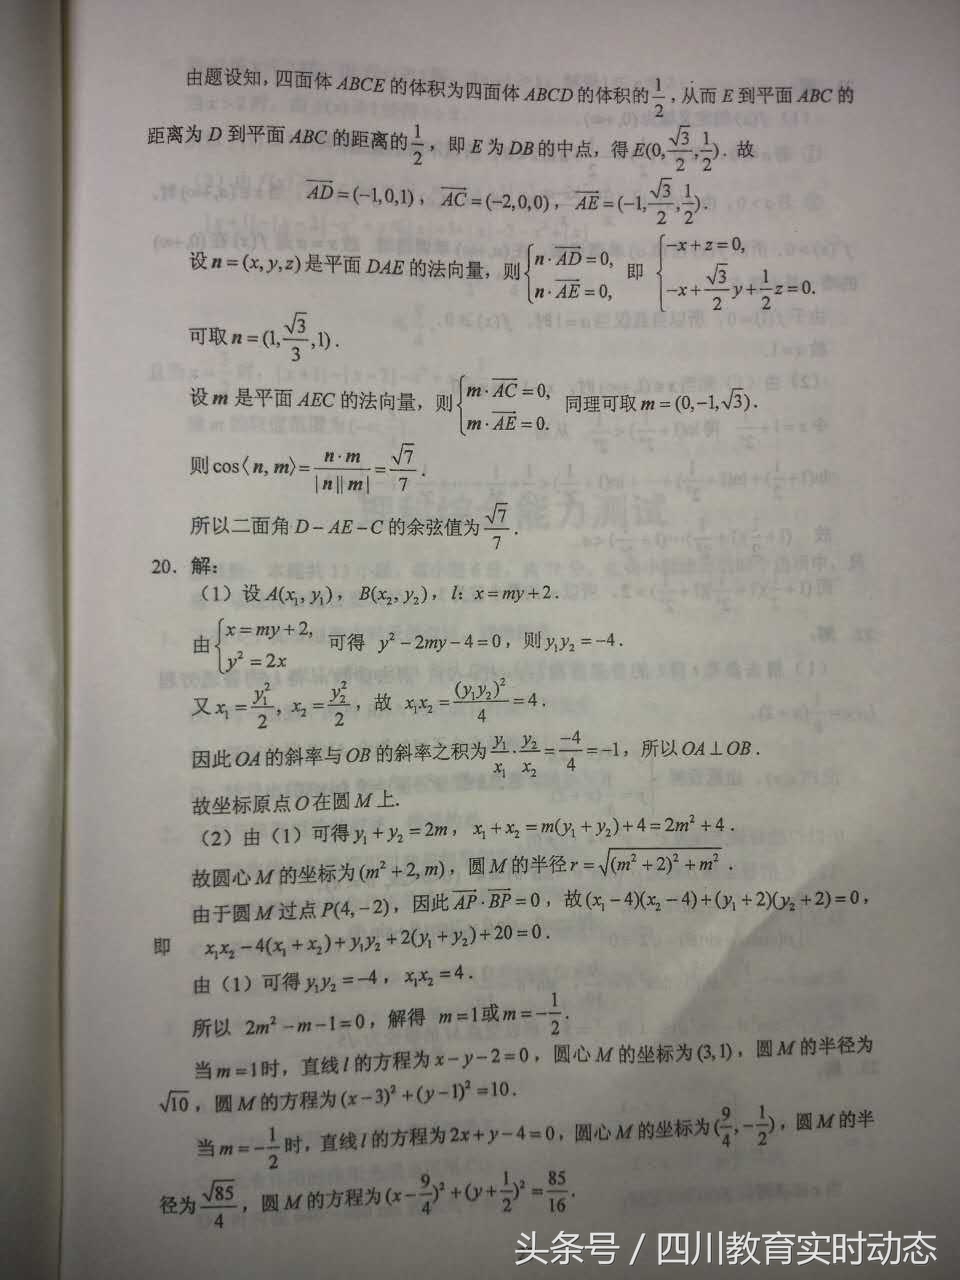 由题设知，四面体 ABCE 的体积为四面体 ABCD 的体积的 1/2，从而 E 到平面 ABC 的
距离为 D 到平面 ABC 的距离的 1/2，即 E 为 DB 的中点，得 E(0, √3/2, 1/2)．故
AD→=(−1,0,1)，AC→=(−2,0,0)，AE→=(−1, √3/2, 1/2).
设 n=(x,y,z) 是平面 DAE 的法向量，则 { n·AD→=0, n·AE→=0, 即 { −x+z=0, −x+√3/2 y+1/2 z=0.
可取 n=(1, √3/3, 1)．
设 m 是平面 AEC 的法向量，则 { m·AC→=0, m·AE→=0. 同理可取 m=(0,−1,√3)．
则 cos〈n, m〉= n·m/|n||m| = √7/7．
所以二面角 D−AE−C 的余弦值为 √7/7．
20．解：
（1）设 A(x₁, y₁)，B(x₂, y₂)，l: x=my+2．
由 { x=my+2, y²=2x 可得 y²−2my−4=0，则 y₁y₂=−4．
又 x₁=y₁²/2，x₂=y₂²/2，故 x₁x₂=(y₁y₂)²/4=4．
因此 OA 的斜率与 OB 的斜率之积为 y₁/x₁·y₂/x₂=−4/4=−1，所以 OA⊥OB．
故坐标原点 O 在圆 M 上．
（2）由（1）可得 y₁+y₂=2m，x₁+x₂=m(y₁+y₂)+4=2m²+4．
故圆心 M 的坐标为 (m²+2, m)，圆 M 的半径 r=√((m²+2)²+m²)．
由于圆 M 过点 P(4,−2)，因此 AP→·BP→=0，故 (x₁−4)(x₂−4)+(y₁+2)(y₂+2)=0，
即 x₁x₂−4(x₁+x₂)+y₁y₂+2(y₁+y₂)+20=0．
由（1）可得 y₁y₂=−4，x₁x₂=4．
所以 2m²−m−1=0，解得 m=1 或 m=−1/2．
当 m=1 时，直线 l 的方程为 x−y−2=0，圆心 M 的坐标为 (3,1)，圆 M 的半径为
√10，圆 M 的方程为 (x−3)²+(y−1)²=10．
当 m=−1/2 时，直线 l 的方程为 2x+y−4=0，圆心 M 的坐标为 (9/4,−1/2)，圆 M 的半
径为 √85/4，圆 M 的方程为 (x−9/4)²+(y+1/2)²=85/16．
头条号 / 四川教育实时动态